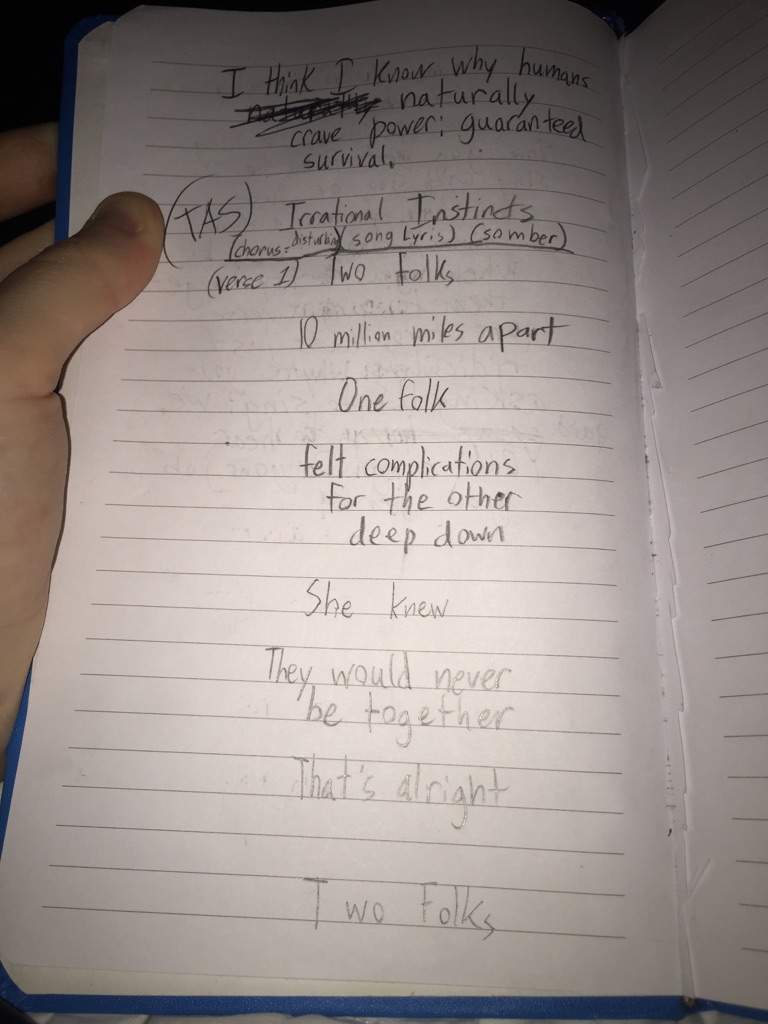 I think I know why humans
naturally
crave power; guaranteed
survival.
(TAS) Irrational Instincts
(chorus = disturbing) (song Lyris) (somber)
(verse 1) Two Folks
10 million miles apart
One folk
felt complications
for the other
deep down
She knew
They would never
be together
That's alright
Two Folks